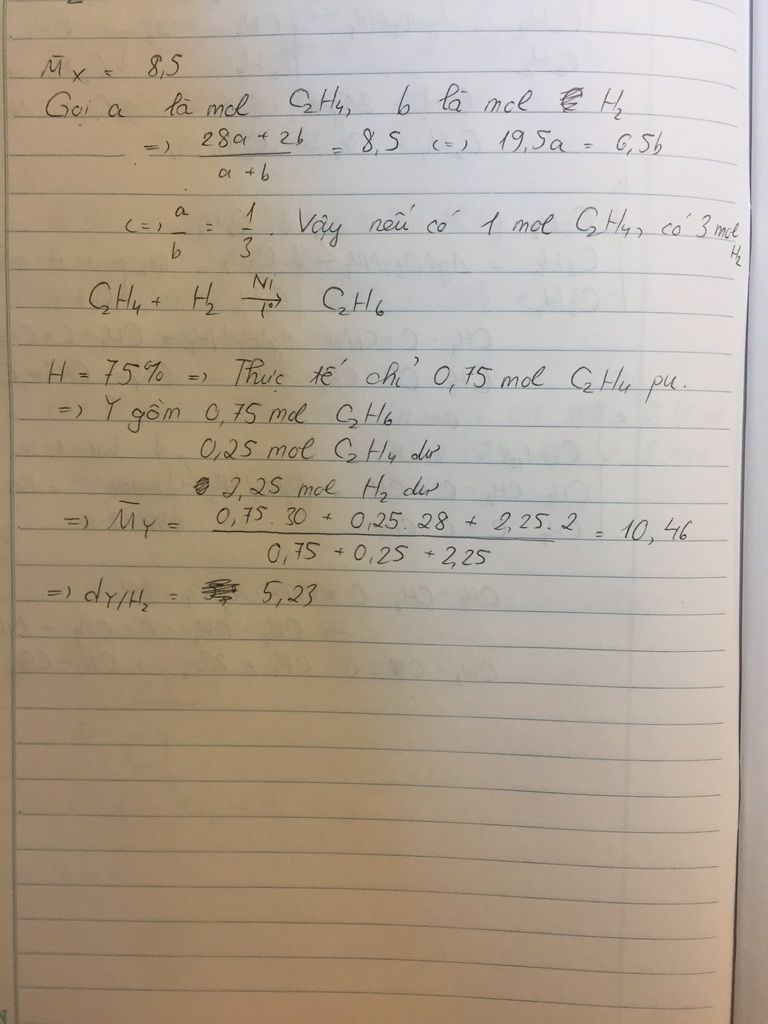 M̄x = 8,5
Gọi a là mol C2H4, b là mol H2
=> 28a + 2b / a + b = 8,5 <=> 19,5a = 6,5b
<=> a/b = 1/3. Vậy nếu có 1 mol C2H4, có 3 mol H2
C2H4 + H2 Ni → t° C2H6
H = 75% => Thực tế chỉ 0,75 mol C2H4 pu.
=> Y gồm 0,75 mol C2H6
0,25 mol C2H4 dư
2,25 mol H2 dư
=> M̄Y = 0,75. 30 + 0,25. 28 + 2,25. 2 / 0,75 + 0,25 + 2,25 = 10,46
=> dY/H2 = 5,23